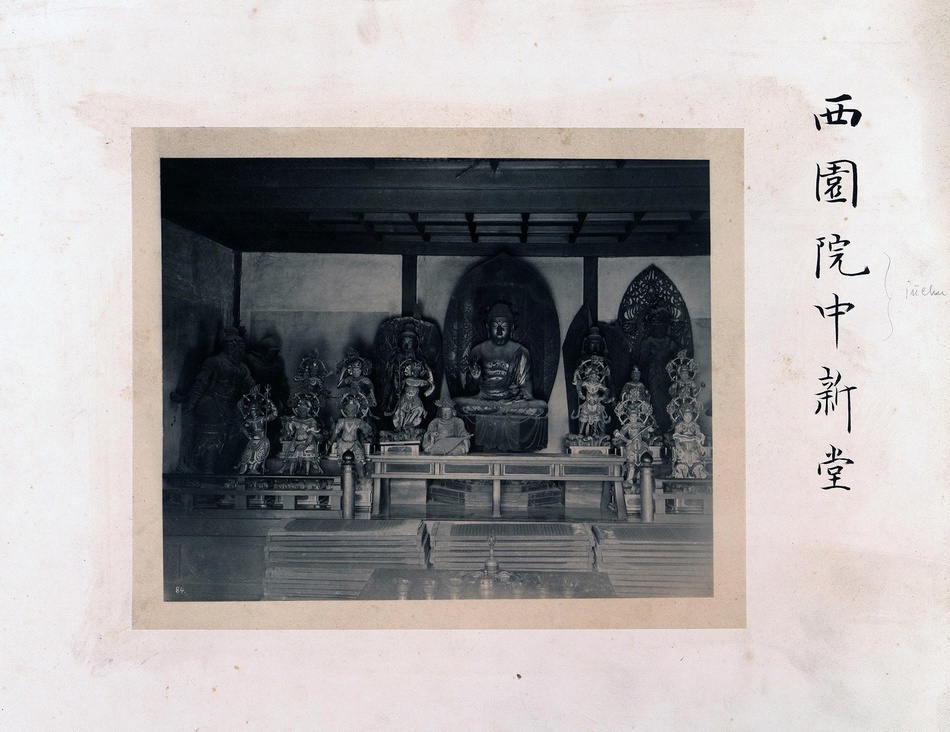 西園院中新堂
84.